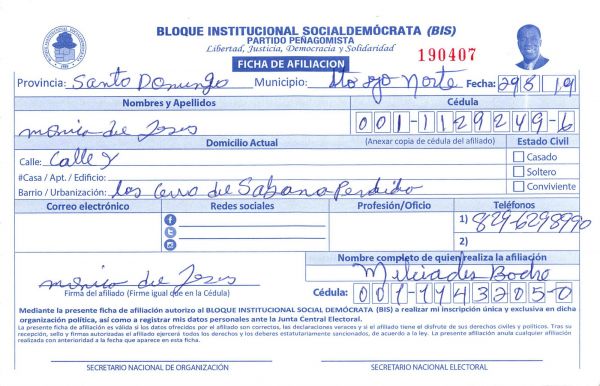 BLOQUE INSTITUCIONAL SOCIALDEMÓCRATA (BIS)
PARTIDO PEÑAGOMISTA
Libertad, Justicia, Democracia y Solidaridad
FICHA DE AFILIACION
190407
Provincia: Santo Domingo Municipio: Sto Dgo Norte Fecha: 29 8 19
Nombres y Apellidos Cédula
monica de Jesus 001-1129249-6
Domicilio Actual (Anexar copia de cédula del afiliado) Estado Civil
Calle: Calle y Casado
#Casa / Apt. / Edificio: Soltero
Barrio / Urbanización: Los Cerro de Sabana Perdida Conviviente
Correo electrónico Redes sociales Profesión/Oficio Teléfonos
1) 829-6298990
2)
Nombre completo de quien realiza la afiliación
monica de Jesus Melciades Bodre
Firma del afiliado (Firme igual que en la Cédula) Cédula: 001-1143205-0
Mediante la presente ficha de afiliación autorizo al BLOQUE INSTITUCIONAL SOCIAL DEMÓCRATA (BIS) a realizar mi inscripción única y exclusiva en dicha
organización política, así como a registrar mis datos personales ante la Junta Central Electoral.
La presente ficha de afiliación es válida si los datos ofrecidos por el afiliado son correctos, las declaraciones veraces y si el afiliado tiene el disfrute de sus derechos civiles y políticos. Tras su
recepción, sello y firmas autorizadas el afiliado ejercerá todos los derechos y los deberes estatutariamente sancionados, de acuerdo a la ley. La presente afiliación anula cualquier afiliación
realizada con anterioridad a la fecha que aparece en esta ficha.
SECRETARIO NACIONAL DE ORGANIZACIÓN SECRETARIO NACIONAL ELECTORAL